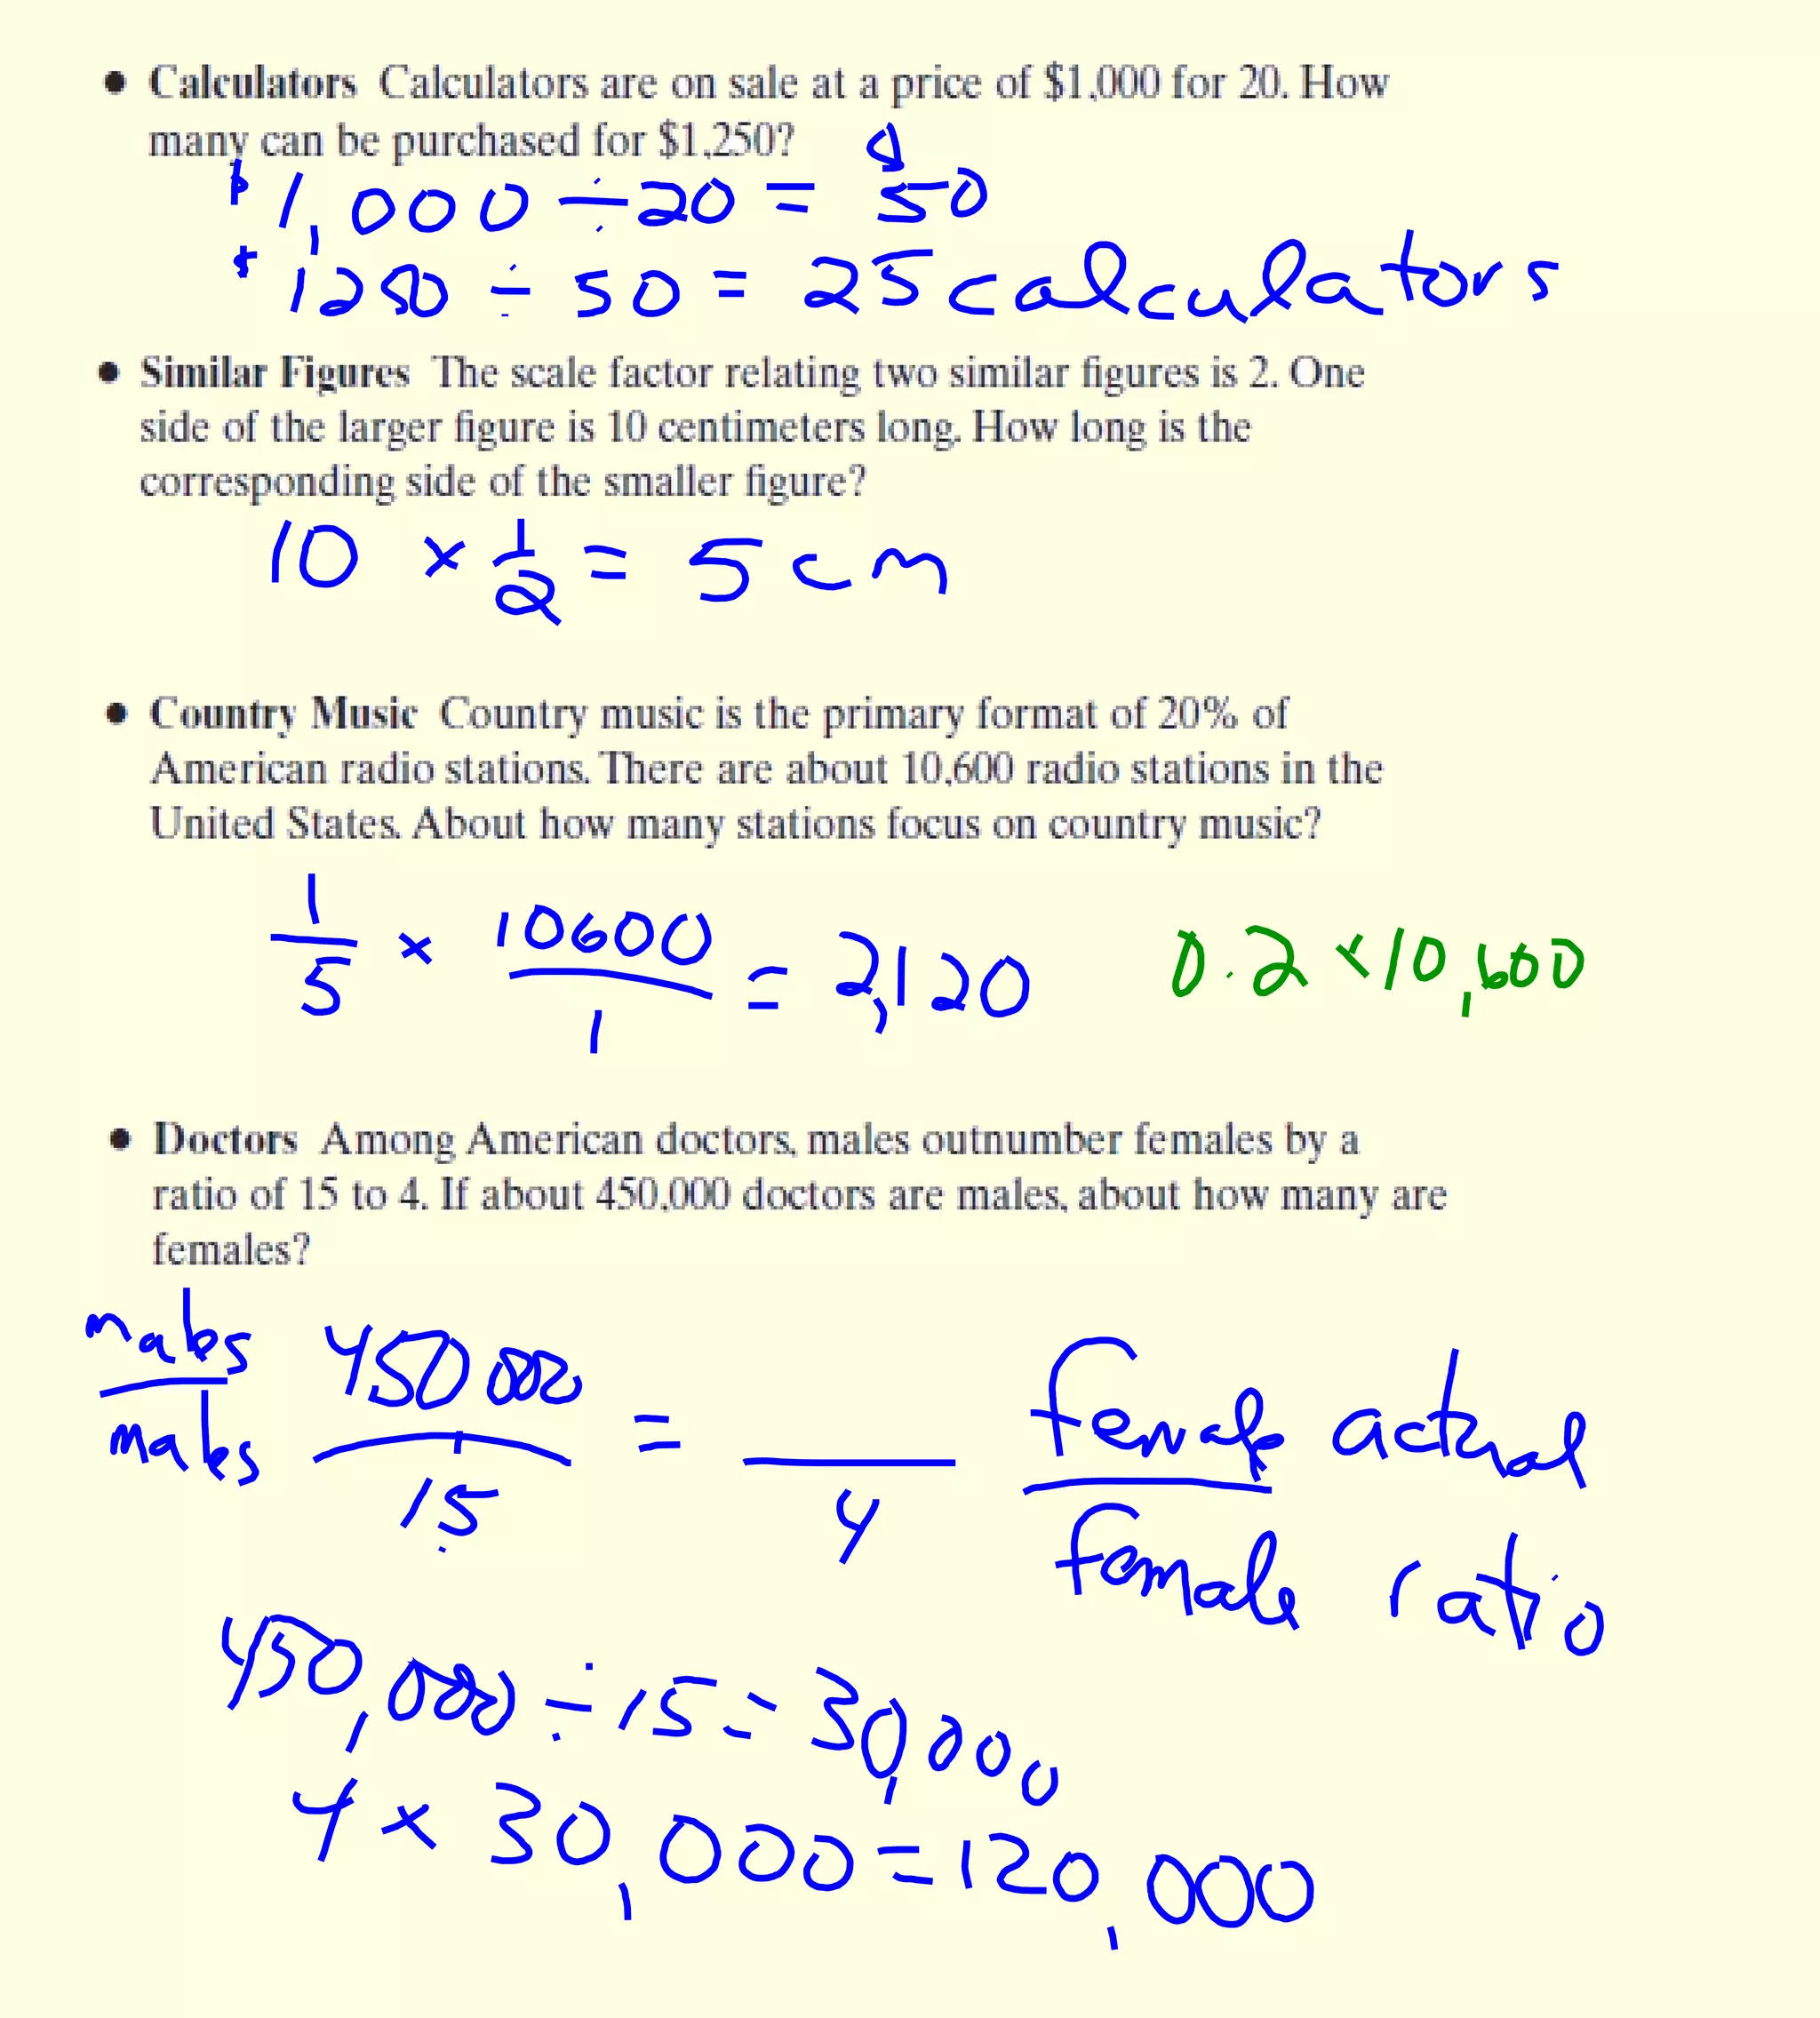 • Calculators Calculators are on sale at a price of $1,000 for 20. How
many can be purchased for $1,250?
$1,000 ÷ 20 = $50
$1250 ÷ 50 = 25 calculators
• Similar Figures The scale factor relating two similar figures is 2. One
side of the larger figure is 10 centimeters long. How long is the
corresponding side of the smaller figure?
10 × 1/2 = 5 cm
• Country Music Country music is the primary format of 20% of
American radio stations. There are about 10,600 radio stations in the
United States. About how many stations focus on country music?
1/5 × 10600/1 = 2,120 0.2 × 10,600
• Doctors Among American doctors, males outnumber females by a
ratio of 15 to 4. If about 450,000 doctors are males, about how many are
females?
males 450000 female actual
males 15 = 4 female ratio
450,000 ÷ 15 = 30,000
4 × 30,000 = 120,000